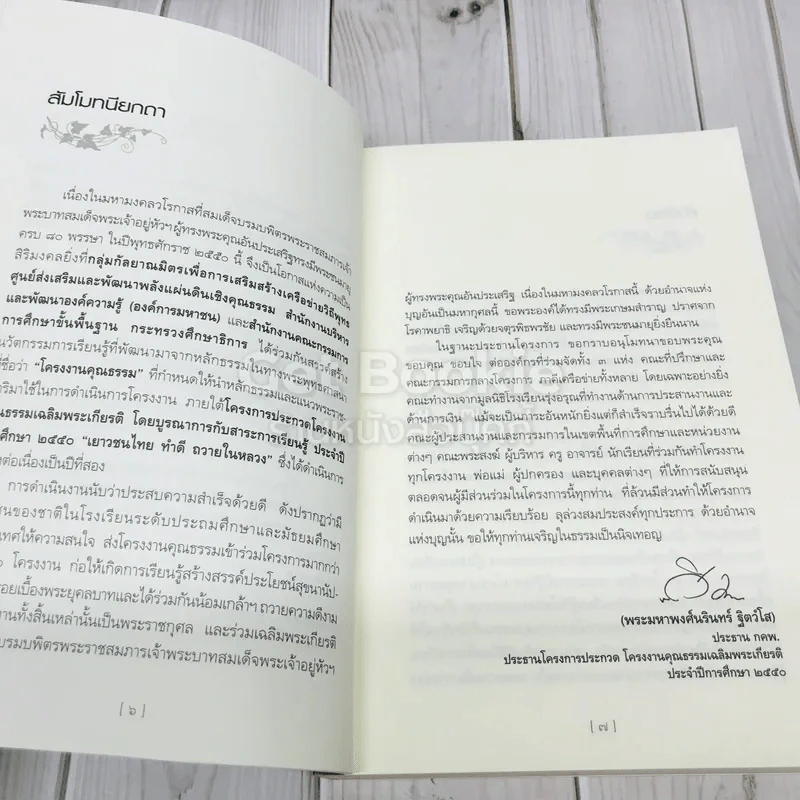 สัมโมทนียกถา
เนื่องในมหามงคลวโรกาสที่สมเด็จบรมบพิตรพระราชสมภารเจ้า
พระบาทสมเด็จพระเจ้าอยู่หัวฯ ผู้ทรงพระคุณอันประเสริฐทรงมีพระชนมายุ
ครบ ๘๐ พรรษา ในปีพุทธศักราช ๒๕๕๐ นี้ จึงเป็นโอกาสแห่งความเป็น
สิริมงคลยิ่งที่กลุ่มกัลยาณมิตรเพื่อการเสริมสร้างเครือข่ายวิถีพุทธ
ศูนย์ส่งเสริมและพัฒนาพลังแผ่นดินเชิงคุณธรรม สำนักงานบริหาร
และพัฒนาองค์ความรู้ (องค์การมหาชน) และสำนักงานคณะกรรมการ
การศึกษาขั้นพื้นฐาน กระทรวงศึกษาธิการ ได้ร่วมกันสรรค์สร้าง
นวัตกรรมการเรียนรู้ที่พัฒนามาจากหลักธรรมในทางพระพุทธศาสนา
ชื่อว่า “โครงงานคุณธรรม” ที่กำหนดให้นำหลักธรรมและแนวพระราช-
ดำริมาใช้ในการดำเนินการโครงงาน ภายใต้โครงการประกวดโครงงาน
คุณธรรมเฉลิมพระเกียรติ โดยบูรณาการกับสาระการเรียนรู้ ประจำปี
การศึกษา ๒๕๕๐ “เยาวชนไทย ทำดี ถวายในหลวง” ซึ่งได้ดำเนินการ
ต่อเนื่องเป็นปีที่สอง
การดำเนินงานนับว่าประสบความสำเร็จด้วยดี ดังปรากฏว่ามี
ของชาติในโรงเรียนระดับประถมศึกษาและมัธยมศึกษา
ให้ความสนใจ ส่งโครงงานคุณธรรมเข้าร่วมโครงการมากกว่า
โครงงาน ก่อให้เกิดการเรียนรู้สร้างสรรค์ประโยชน์สุขนานัป-
เบื้องพระยุคลบาทและได้ร่วมกันน้อมเกล้าฯ ถวายความดีงาม
ทั้งสิ้นเหล่านั้นเป็นพระราชกุศล และร่วมเฉลิมพระเกียรติ
บรมบพิตรพระราชสมภารเจ้าพระบาทสมเด็จพระเจ้าอยู่หัวฯ
[ ๖ ]
ผู้ทรงพระคุณอันประเสริฐ เนื่องในมหามงคลวโรกาสนี้ ด้วยอำนาจแห่ง
บุญอันเป็นมหากุศลนี้ ขอพระองค์ได้ทรงมีพระเกษมสำราญ ปราศจาก
โรคาพยาธิ เจริญด้วยจตุรพิธพรชัย และทรงมีพระชนมายุยิ่งยืนนาน
ในฐานะประธานโครงการ ขอกราบอนุโมทนาขอบพระคุณ
ขอบคุณ ขอบใจ ต่อองค์กรที่ร่วมจัดทั้ง ๓ แห่ง คณะที่ปรึกษาและ
คณะกรรมการกลางโครงการ ภาคีเครือข่ายทั้งหลาย โดยเฉพาะอย่างยิ่ง
คณะทำงานจากมูลนิธิโรงเรียนรุ่งอรุณที่ทำงานด้านการประสานงานและ
ด้านการเงิน แม้จะเป็นภาระอันหนักยิ่งแต่ก็สำเร็จราบรื่นไปได้ด้วยดี
คณะผู้ประสานงานและกรรมการในเขตพื้นที่การศึกษาและหน่วยงาน
ต่างๆ คณะพระสงฆ์ ผู้บริหาร ครู อาจารย์ นักเรียนที่ร่วมกันทำโครงงาน
ทุกโครงงาน พ่อแม่ ผู้ปกครอง และบุคคลต่างๆ ที่ให้การสนับสนุน
ตลอดจนผู้มีส่วนร่วมในโครงการนี้ทุกท่าน ที่ล้วนมีส่วนทำให้โครงการ
ดำเนินมาด้วยความเรียบร้อย ลุล่วงสมประสงค์ทุกประการ ด้วยอำนาจ
แห่งบุญนั้น ขอให้ทุกท่านเจริญในธรรมเป็นนิจเทอญ
(พระมหาพงศ์นรินทร์ ฐิตวํโส)
ประธาน กคพ.
ประธานโครงการประกวด โครงงานคุณธรรมเฉลิมพระเกียรติ
ประจำปีการศึกษา ๒๕๕๐
[ ๗ ]